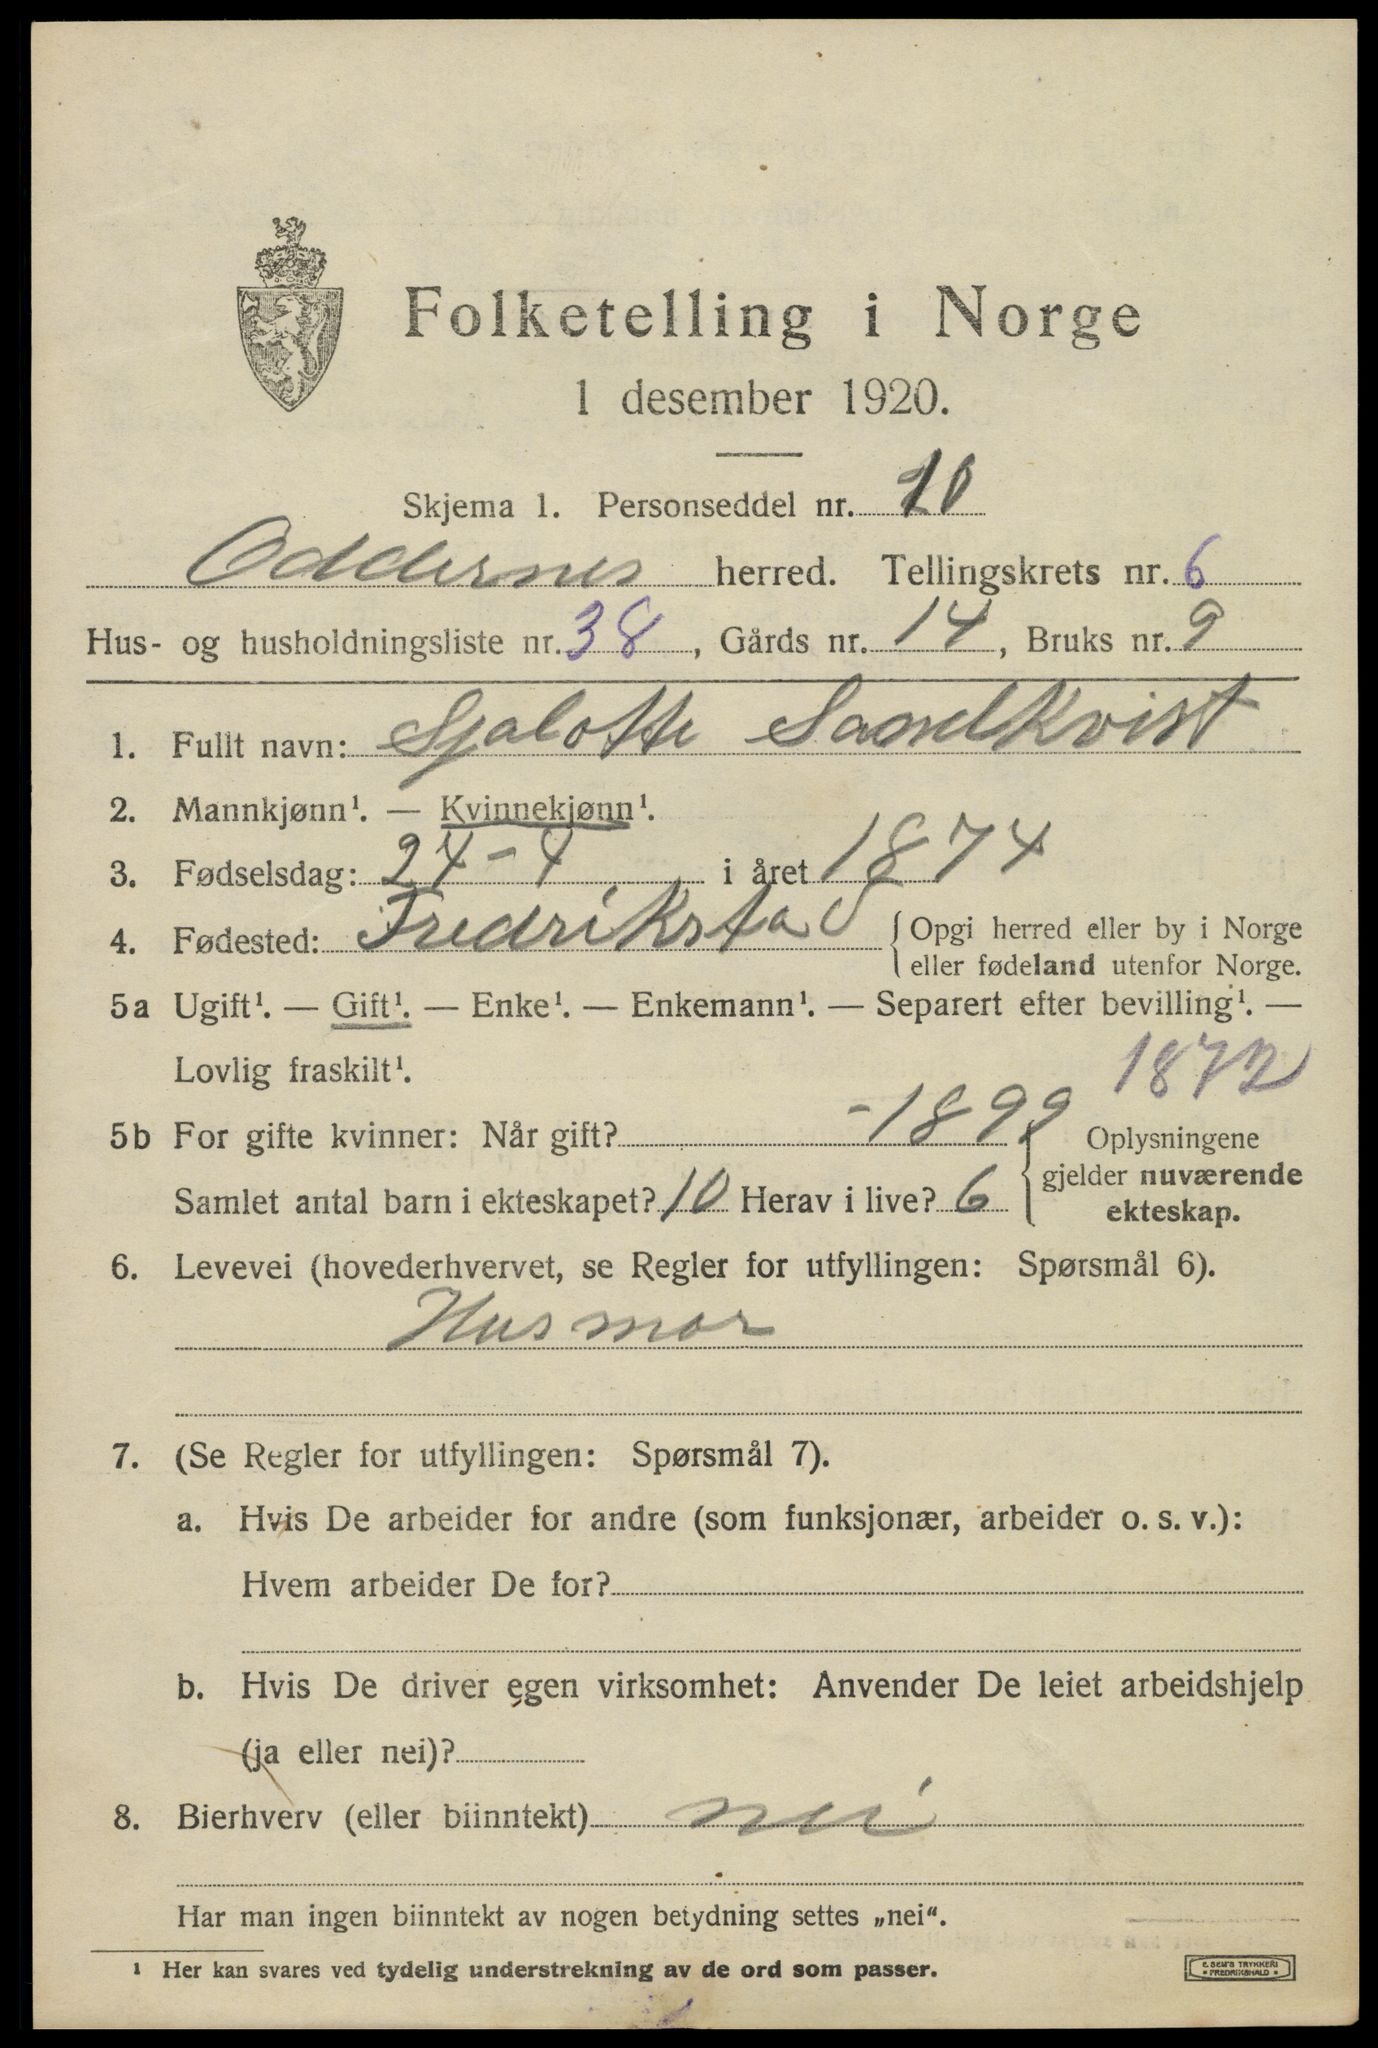 Folketelling i Norge
1 desember 1920.
Skjema 1. Personseddel nr. 10
Oddernes herred. Tellingskrets nr. 6
Hus- og husholdningsliste nr. 38, Gårds nr. 14, Bruks nr. 9
1. Fullt navn: Sjalotte Sandkvist
2. Mannkjønn¹. — Kvinnekjønn¹.
3. Fødselsdag: 24-4 i året 1874
4. Fødested: Fredrikstad {Opgi herred eller by i Norge
eller fødeland utenfor Norge.
5a Ugift¹. — Gift¹. — Enke¹. — Enkemann¹. — Separert efter bevilling¹. —
Lovlig fraskilt¹.
1872
5b For gifte kvinner: Når gift? -1899 { Oplysningene
gjelder nuværende
Samlet antal barn i ekteskapet? 10 Herav i live? 6
ekteskap.
6. Levevei (hovederhvervet, se Regler for utfyllingen: Spørsmål 6).
Husmor
7. (Se Regler for utfyllingen: Spørsmål 7).
a. Hvis De arbeider for andre (som funksjonær, arbeider o. s. v.):
Hvem arbeider De for?
b. Hvis De driver egen virksomhet: Anvender De leiet arbeidshjelp
(ja eller nei)?
8. Bierhverv (eller biinntekt) nei
Har man ingen biinntekt av nogen betydning settes „nei“.
¹ Her kan svares ved tydelig understrekning av de ord som passer.
E. SEM'S TRYKKERI
• FREDRIKSHALD •